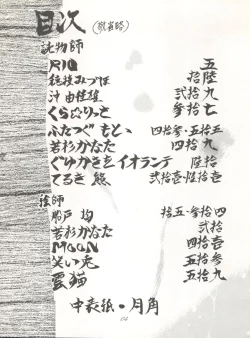 目次 (敬省略)
読物師
RIQ 五
桂枝みづほ 拾陸
汁由佳雄 弐拾九
くら☆りっさ 参拾七
ふたつぐ もと、 四拾参・五拾五
若杉かなた 四拾九
ぐゆかき立イオランテ 陸拾
てるき熊 弐拾壱・陸拾壱
絵師
船戸 均 拾五・参拾四
若杉かなた 弐拾
MOON 四拾壱
笑い兎 五拾参
雲猫 五拾九
中表紙・月角
04